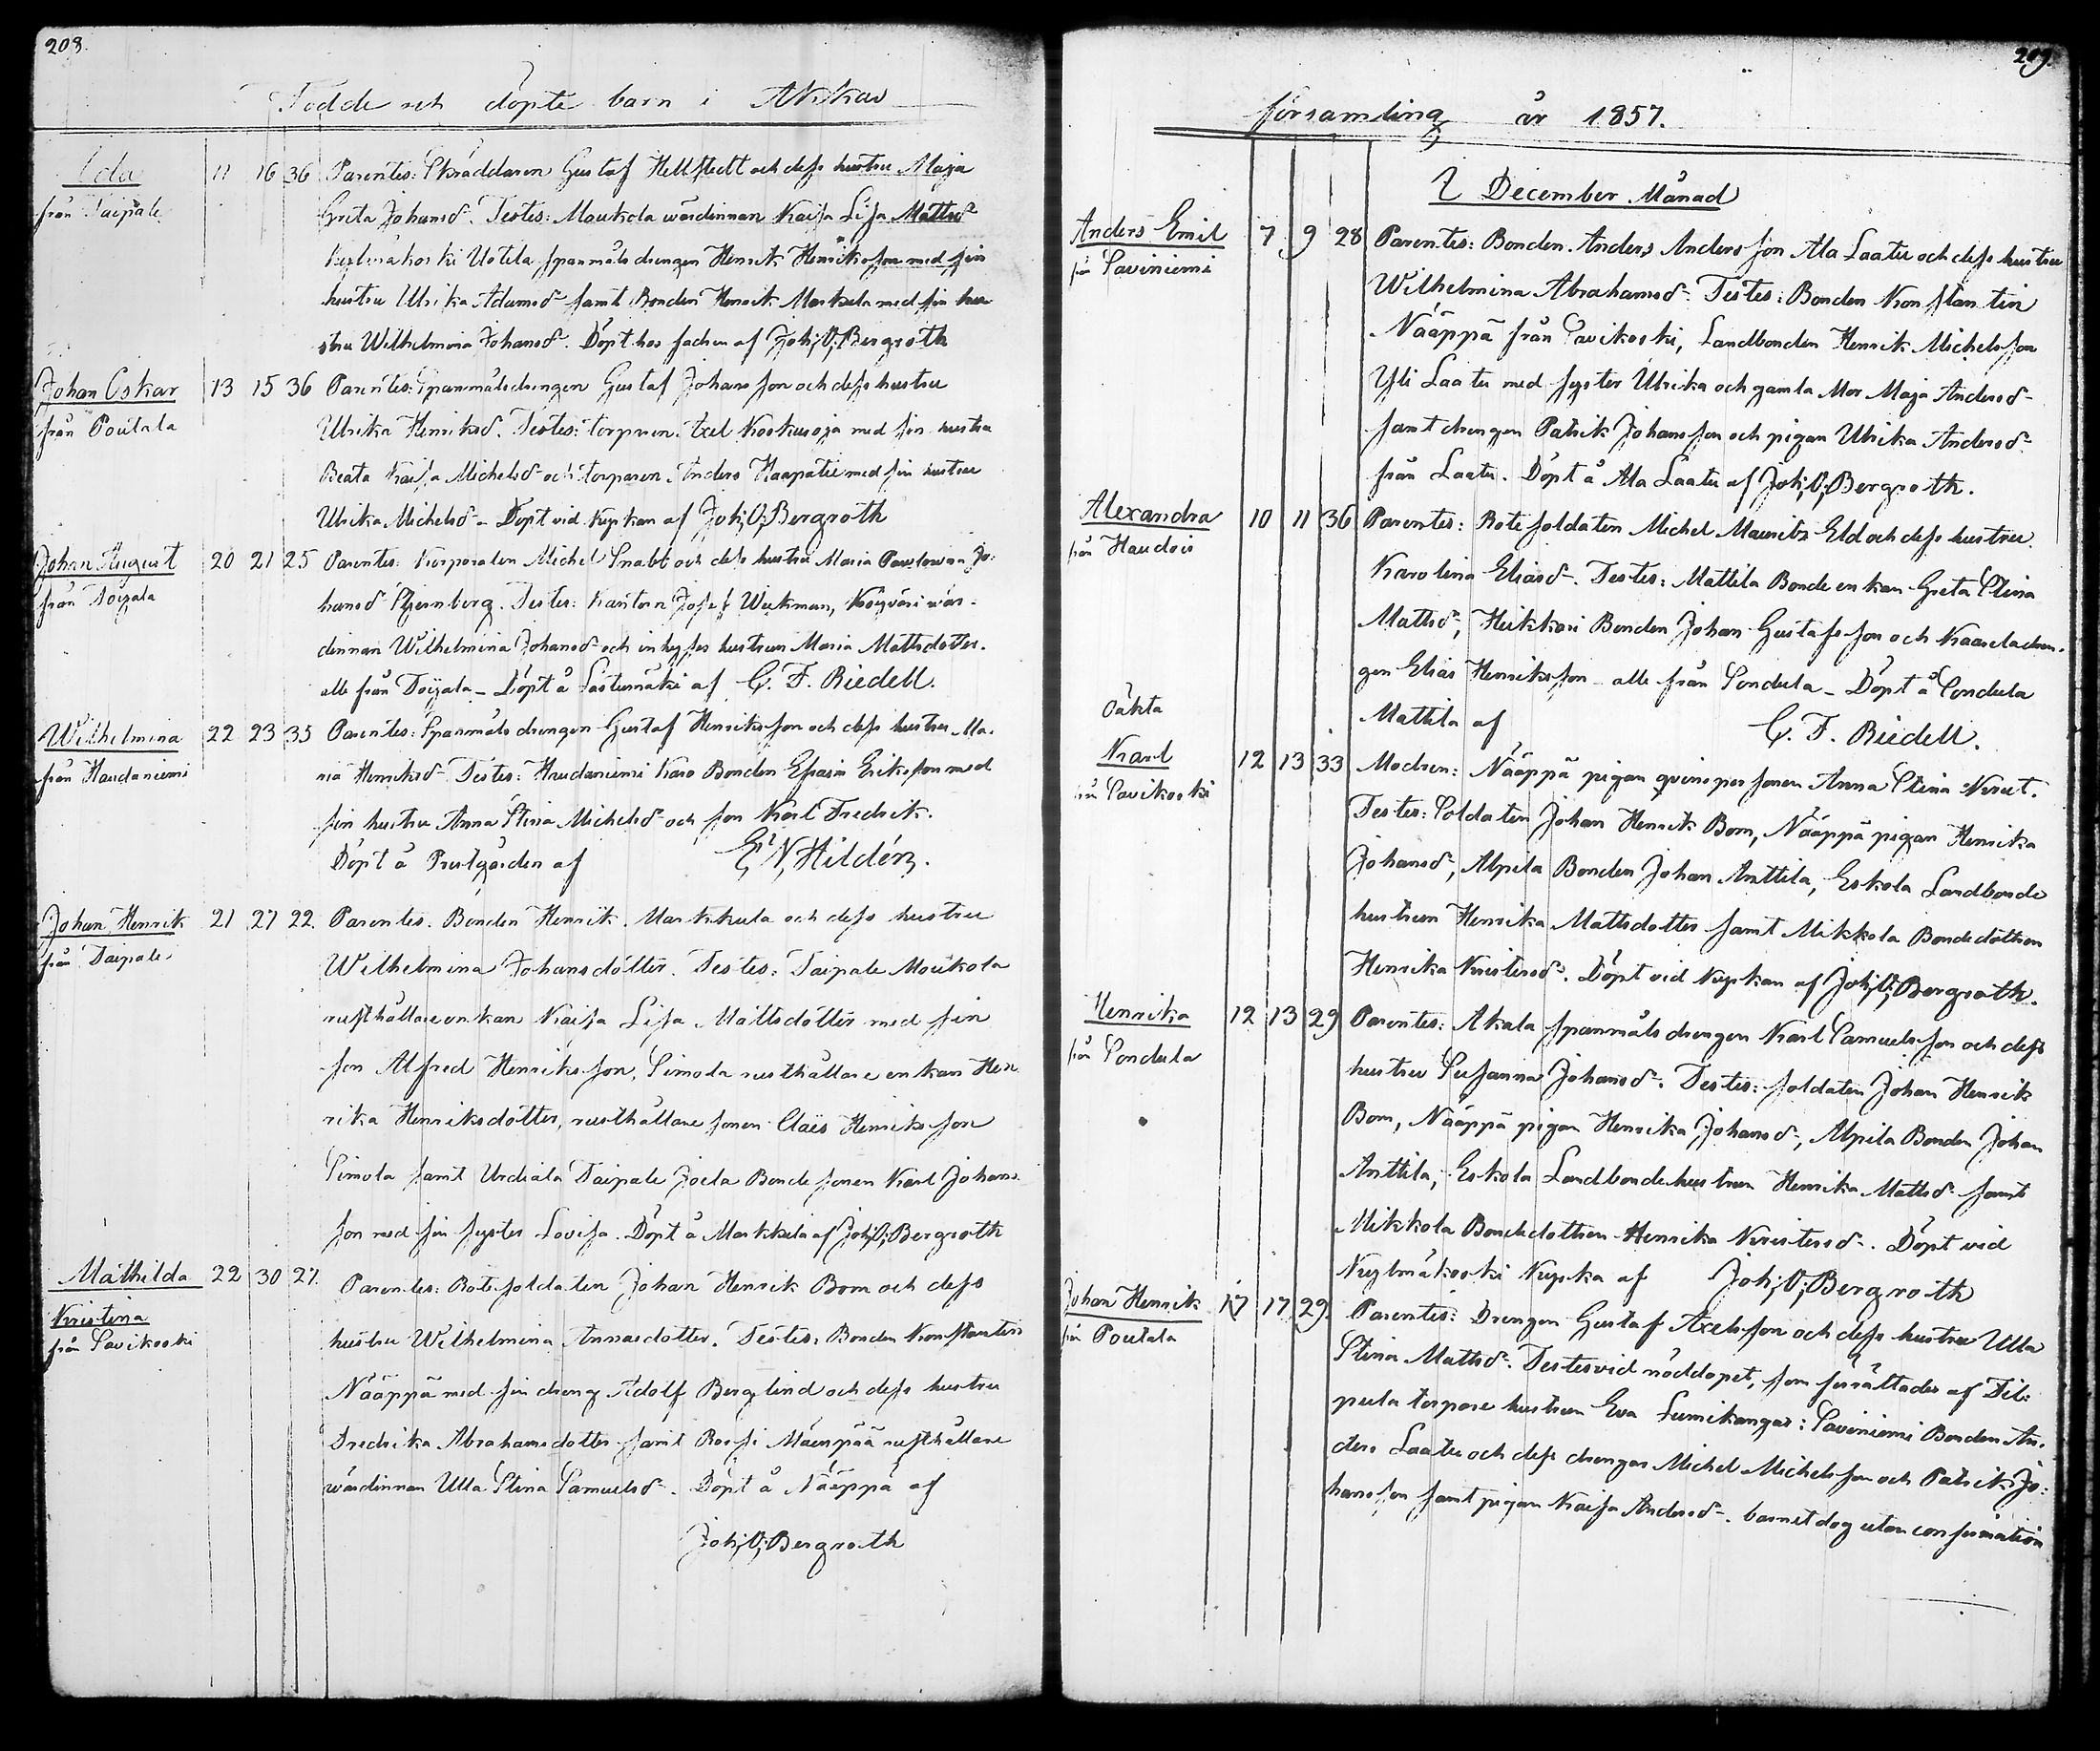 208.
Födde och döpte barn i Akkas
Ida 11 16 36 Parentes: Skräddaren Gustaf Hellstedt och dess hustru Maja
från Taipale Greta Johansd. Testes: Moukola wärdinnan Kaisa Lisa Mattsd
Kylmäkoski Uotila spanmåls drengen Henrik Henriksson med sin
hustru Ulrika Adamsd samt Bonden Henrik Markula med sin hu
stru Wilhelmina Johansd. Döpt hos fadren af Joh; O; Bergroth
Johan Oskar 13 15 36 Parentes: Spanmålsdrengen Gustaf Johansson och dess hustru
från Poutala Ulrika Henriksd. Testes: torparen Axel Koskuoja med sin hustru
Beata Kaisa Michelsd och torparen Anders Haapatie med sin hustru
Ulrika Michelsd – Döpt vid Kyrkan af Joh; O; Bergroth
Johan August 20 21 25 Parentes: Korporalen Michel Snabb och dess hustru Maria Jo:
från Toijala hansd Stjernberg. Testes: Kantorn Josef Wickman, wär-
dinnan Wilhelmina Johansd och inhyses hustrun Maria Mattsdotter.
alla från Toijala – Döpt å af C. F. Riedell.
Wilhelmina 22 23 35 Parentes: Spanmåls drengen Gustaf Henriksson och dess hustru Ma-
från Haudaniemi ria Henriksd. Testes: Haudaniemi Karo Bonden Efraim Eriksson med
sin hustru Anna Stina Michelsd och son Karl Fredrik.
Döpt å Prestgården af E; N; Hildén.
Johan Henrik 21 27 22. Parentes. Bonden Henrik Markkula och dess hustru
från Taipale Wilhelmina Johansdotter. Testes: Taipale Moukola
rusthållare enkan Kaisa Lisa Mattsdotter med sin
son Alfred Henriksson, Simola rusthållare enkan Hen
rika Henriksdotter, rusthållare sonen Claës Henriksson
Simola samt Urdiala Taipale Joela Bonde sonen Karl Johans-
son med sin syster Lovisa. Döpt å Markkula af Joh; O; Bergroth
Mathilda 22 30 27. Parentes: Rote soldaten Johan Henrik Bom och dess
Kristina
från Savikoski hustru Wilhelmina Annasdotter. Testes: Bonden Konstantin
Nääppä med sin dreng Adolf Berglind och dess hustru
Fredrika Abrahamsdotter samt Rossi Mäenpää rusthållare
wärdinnan Ulla Stina Samuelsd. Döpt å Nääppä af
Joh; O; Bergroth
209.
församling år 1857.
I December Månad
Anders Emil 7 9 28 Parentes: Bonden Anders Andersson Ala Laatu och dess hustru
från Saviniemi Wilhelmina Abrahamsd. Testes: Bonden Konstantin
Nääppä från Savikoski, Landbonden Henrik Michelsson
Yli Laatu med syster Ulrika och gamla Mor Maja Andersd
samt drengen Patrik Johansson och pigan Ulrika Andersd
från Laatu. Döpt å Ala Laatu af Joh; O; Bergroth.
Alexandra 10 11 36 Parentes: Rote soldaten Michel Maurits Eld och dess hustru
från Haudois Karolina Eliasd. Testes: Mattila Bonde enkan Greta Stina
Mattsd, Heikkari Bonden Johan Gustafsson och Kaarela dren-
gen Elias Henriksson – alla från Sondula – Döpt å Sondula
Mattila af C. F. Riedell.
Oäkta
Karl 12 13 33 Modren: Nääppä pigan qvinspersonen Anna Stina Knut.
från Savikoski Testes: Soldaten Johan Henrik Bom, Nääppä pigan Henrika
Johansd, Alpila Bonden Johan Anttila, Eskola Landbonde
hustrun Henrika Mattsdotter samt Mikkola Bondedottren
Henrika Kristersd. Döpt vid Kyrkan af Joh; O; Bergroth.
Henrika 12 13 29 Parentes: Akala spanmåls drengen Karl Samuelsson och dess
från Sondula hustru Susanna Johansd. Testes: soldaten Johan Henrik
Bom, Nääppä pigan Henrika Johansd, Alpila Bonden Johan
Anttila, Eskola Landbondehustrun Henrika Mattsd samt
Mikkola Bondedottren Henrika Kristersd. Döpt vid
Kylmäkoski Kyrka af Joh; O; Bergroth
Johan Henrik 17 17 29. Parentes: Drengen Gustaf Axelsson och dess hustru Ulla
från Poutala Stina Mattsd. Testes vid nöddopet, som förättades af Tib:
pula torpare hustrun Eva Lumikangas: Saviniemi Bonden An-
ders Laatu och dess drengar Michel Michelsson och Patrik Jo:
hansson samt pigan Kaisa Andersd. barnet dog utan confirmation